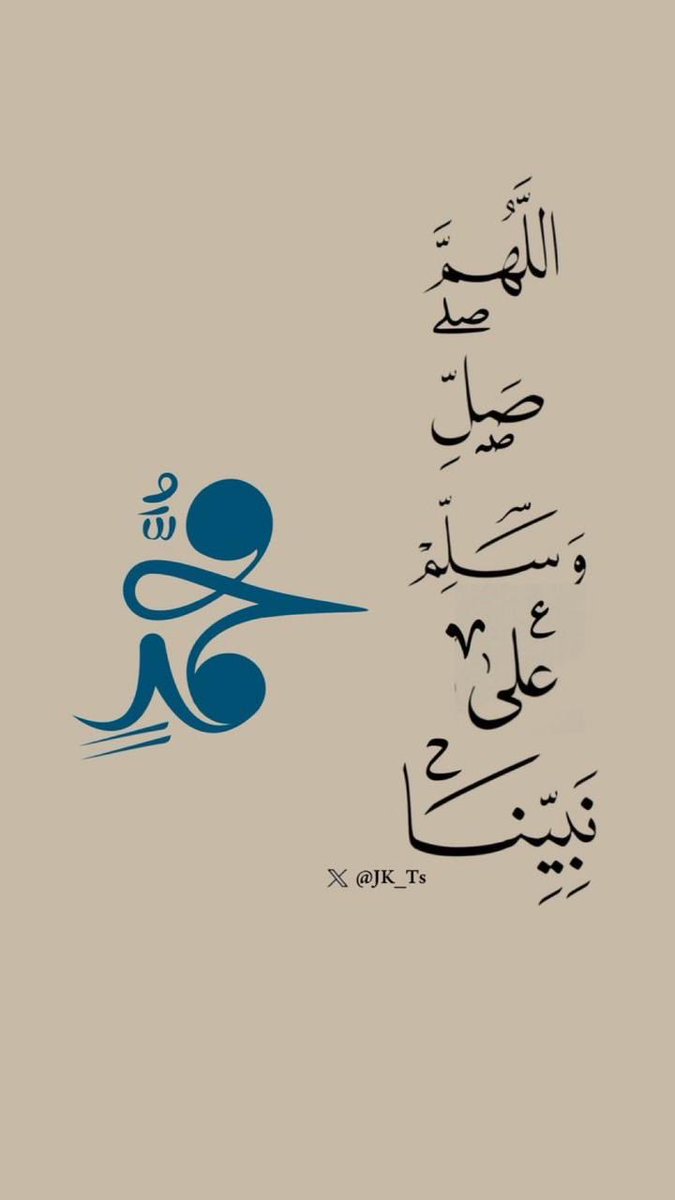 اللَّهُمَّ
صَلِّ
وَسَلِّمْ
عَلىٰ
نَبِيِّنَا
مُحَمَّدٍ
@JK_Ts